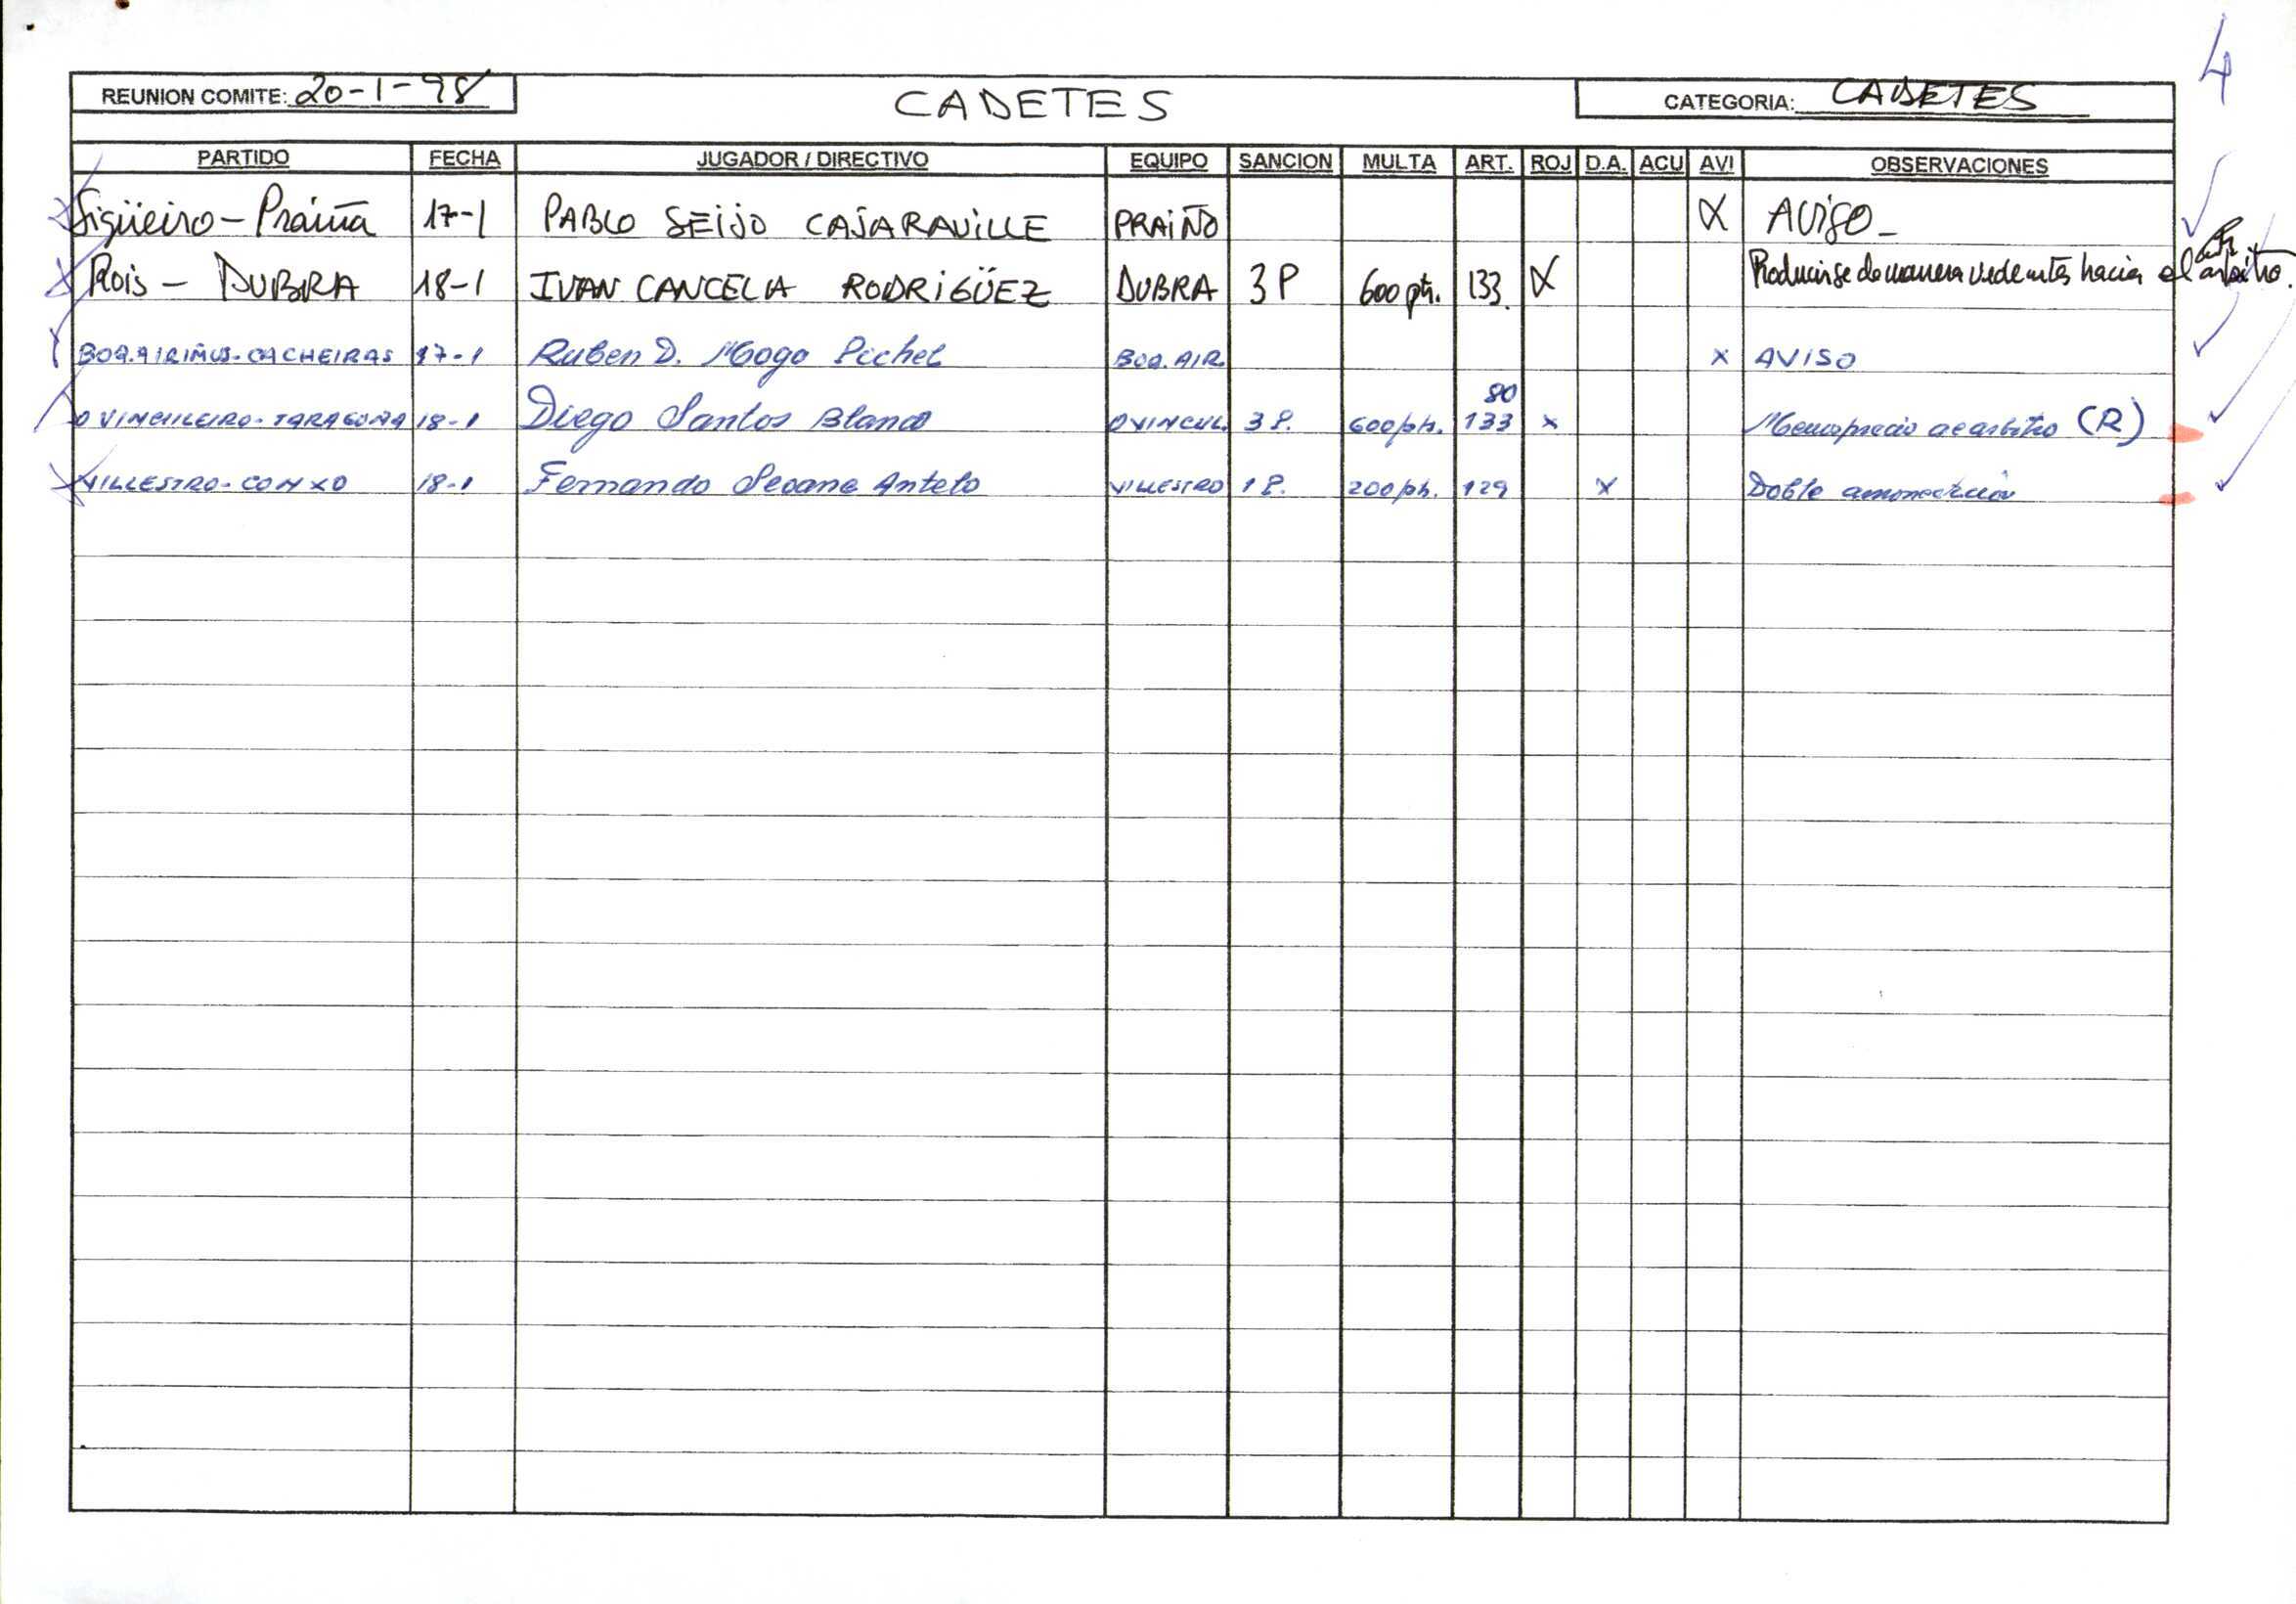 4
REUNION COMITE: 20-1-98 CADETES CATEGORIA: CADETES
PARTIDO FECHA JUGADOR / DIRECTIVO EQUIPO SANCION MULTA ART. ROJ D.A. ACU AVI OBSERVACIONES
Sigüeiro - Praiña 17-1 PABLO SEIJO CAJARAVILLE PRAIÑO X AVISO -
Rois - DUBRA 18-1 IVAN CANCELA RODRIGÜEZ DUBRA 3P 600 pts. 133. X Producirse de manera hacia el arbitro.
BOQ. AIRIÑOS - CACHEIRAS 17-1 Ruben D. Mogo Pichel BOQ. AIR. X AVISO
80
O VINCULEIRO - TARAGOÑA 18-1 Diego Santos Blanco OVINCUL. 3 P. 600 pts. 133 X Menosprecio al arbitro (R)
VILLESTRO - CONXO 18-1 Fernando Seoane Antelo VILLESTRO 1 P. 200 pts. 129 X Doble amonestación